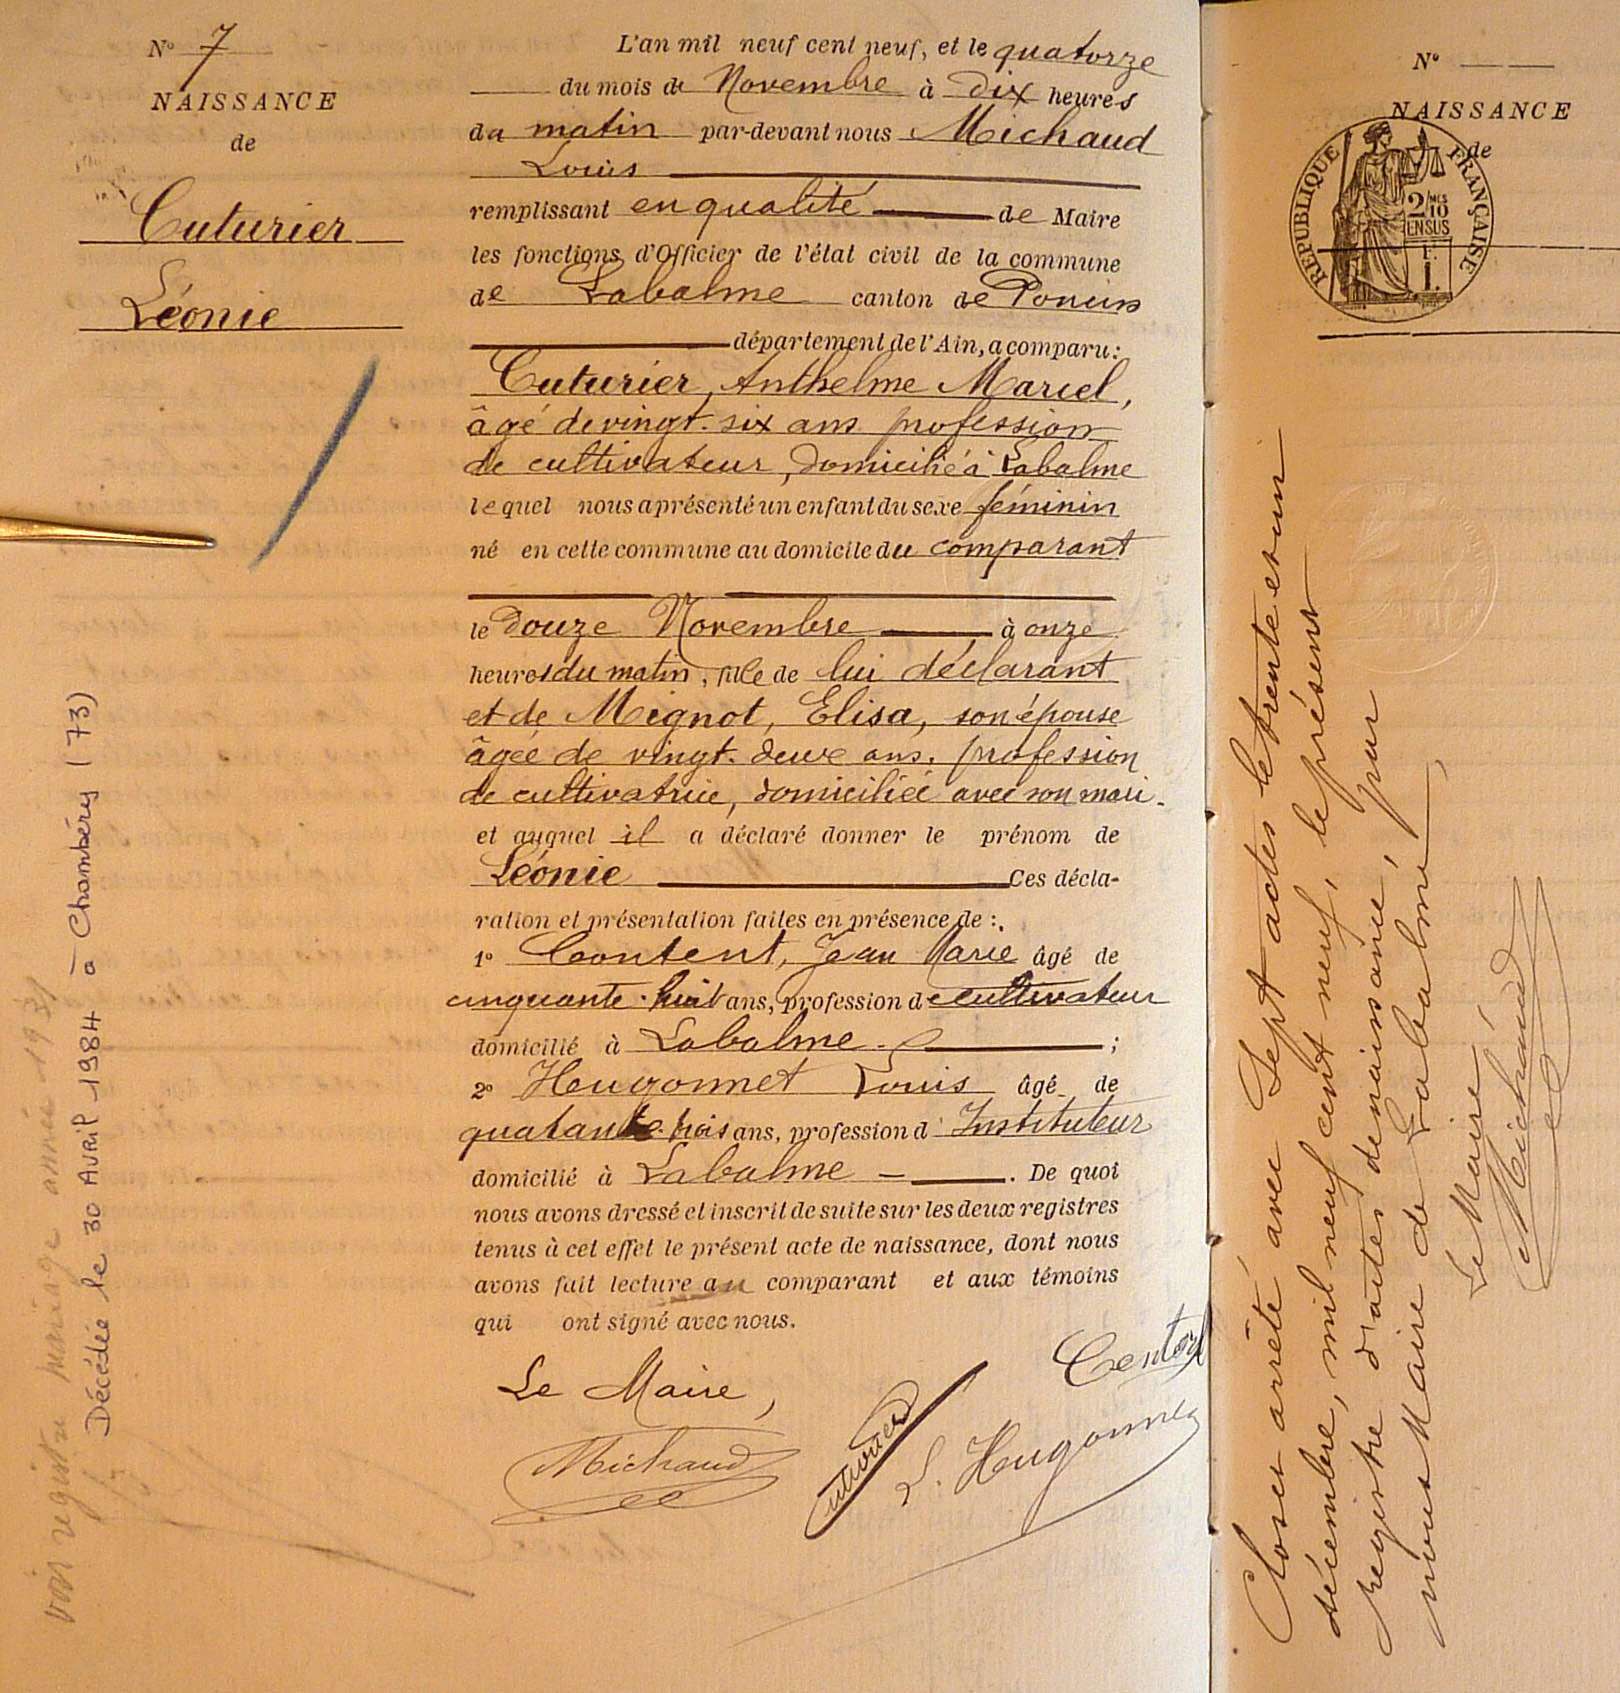 N° 7
NAISSANCE
de
Cuturier
Léonie
L'an mil neuf cent neuf, et le quatorze
du mois de Novembre à dix heures
du matin par-devant nous Michaud
Louis
remplissant en qualité de Maire
les fonctions d'Officier de l'état civil de la commune
de Labalme canton de Poncin
département de l'Ain, a comparu :
Cuturier, Anthelme Marcel,
âgé de vingt-six ans profession
de cultivateur, domicilié à Labalme
lequel nous a présenté un enfant du sexe féminin
né en cette commune au domicile du comparant
le douze Novembre à onze
heures du matin, fille de lui déclarant
et de Mignot, Elisa, son épouse
âgée de vingt-deux ans, profession
de cultivatrice, domiciliée avec son mari.
et auquel il a déclaré donner le prénom de
Léonie Ces décla-
ration et présentation faites en présence de :
1° Content, Jean Marie âgé de
cinquante-huit ans, profession de cultivateur
domicilié à Labalme ;
2° Hugonnet Louis âgé de
quarante-trois ans, profession d'Instituteur
domicilié à Labalme - . De quoi
nous avons dressé et inscrit de suite sur les deux registres
tenus à cet effet le présent acte de naissance, dont nous
avons fait lecture au comparant et aux témoins
qui ont signé avec nous.
Le Maire,
Michaud
Cuturier
Content
L. Hugonnet
voir registre mariage année 1931
Décédée le 30 Avril 1984 à Chambéry (73)
N°
NAISSANCE
de
RÉPUBLIQUE FRANÇAISE
2/10 MES
EN SUS
Clos et arrêté avec sept actes le trente et un
décembre, mil neuf cent neuf, le présent
registre d'actes de naissance, par
nous Maire de Labalme,
Le Maire,
Michaud